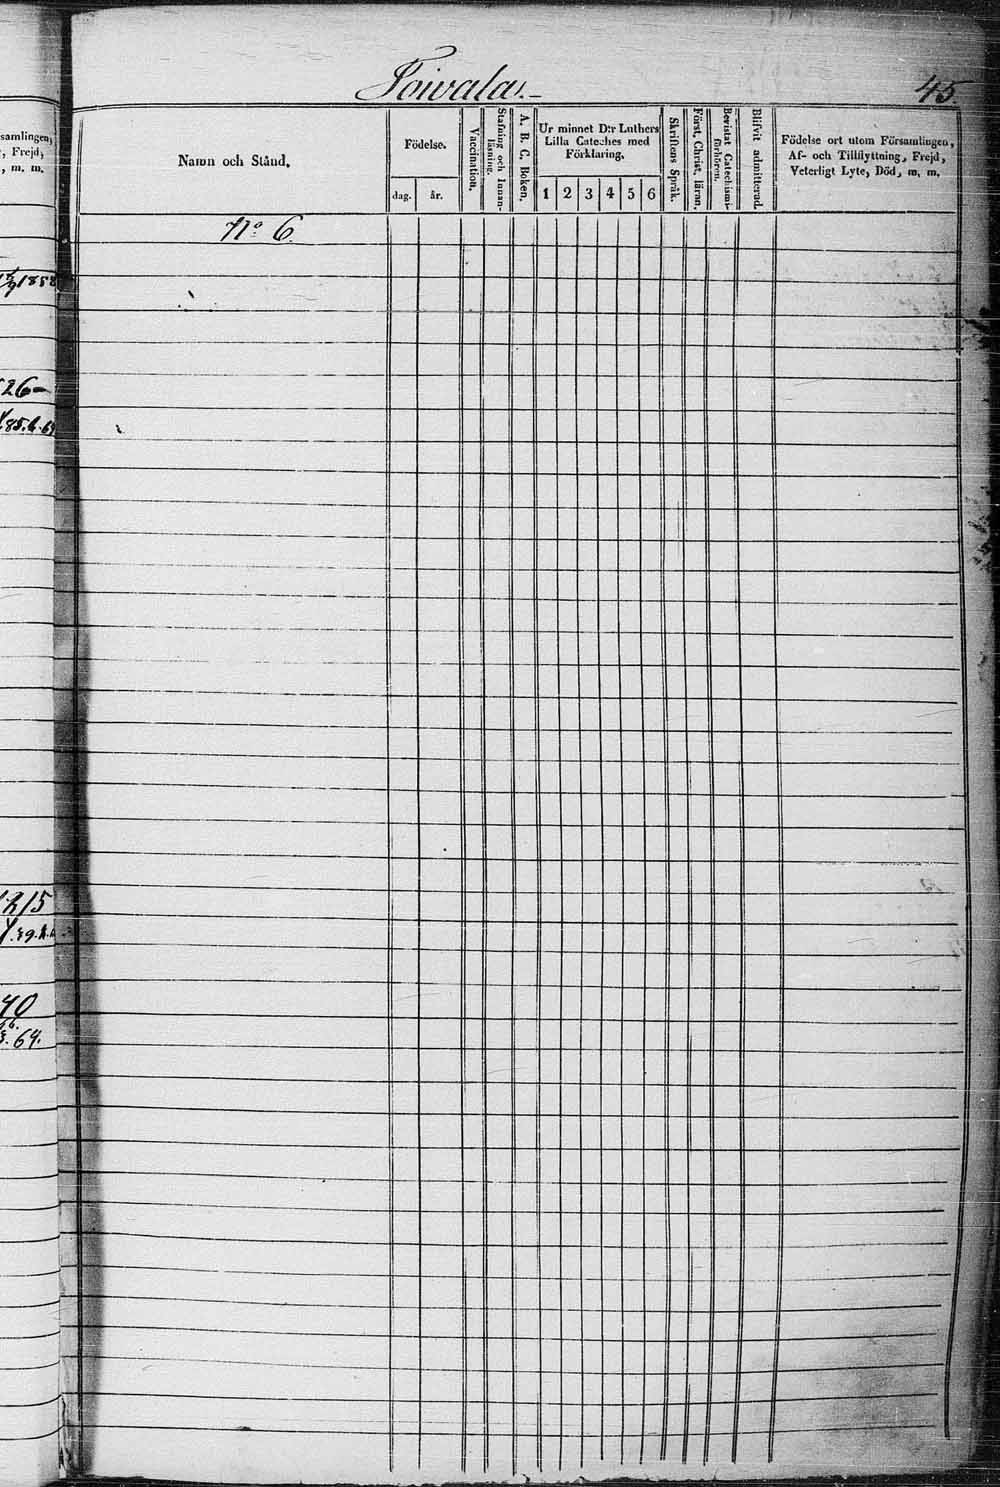 Toivala.
45.
samlingen,
, Frejd,
, m. m.
Namn och Stånd.
Födelse.
dag.
år.
Vaccination.
Stafning och Innan-
läsning.
A. B. C. Boken.
Ur minnet D:r Luthers
Lilla Cateches med
Förklaring.
1 2 3 4 5 6
Skriftens Språk.
Först. Christ. läran.
Bevistat Catechismi-
förhören.
Blifvit admitterad.
Födelse ort utom Församlingen,
Af- och Tillflyttning, Frejd,
Veterligt Lyte, Död, m. m.
No 6.
1858
26
85.6.69
215
40
64.